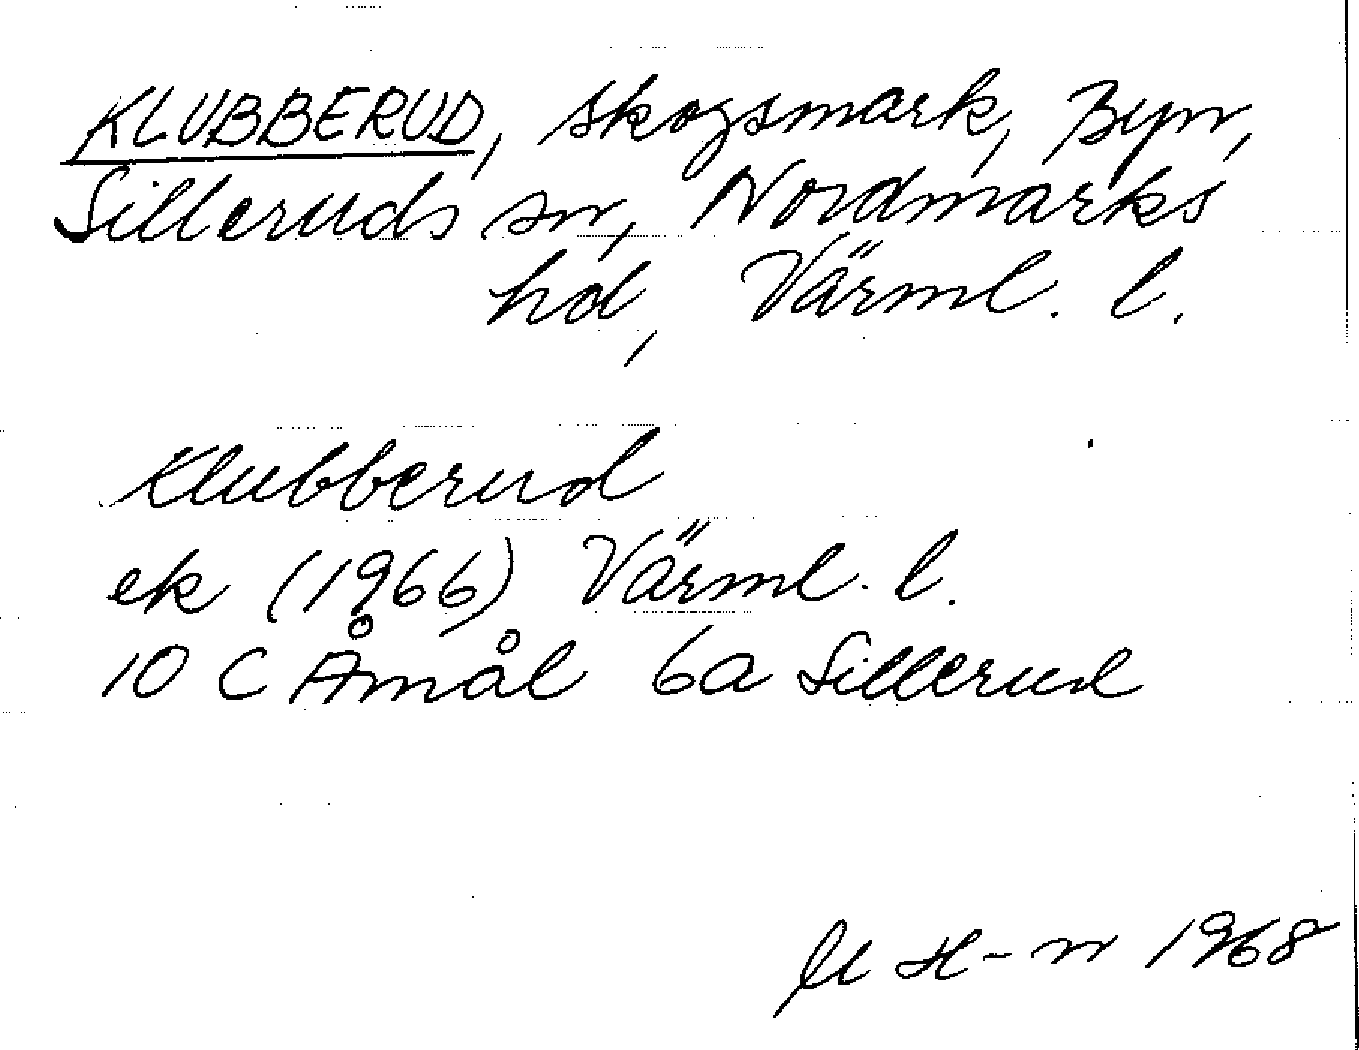 KLUBBERUD, skogsmark, Byn,
Silleruds sn, Nordmarks
hd, Värml. l.
Klubberud
ek (1966) Värml. l.
10 C Åmål 6a Sillerud
H-n 1968